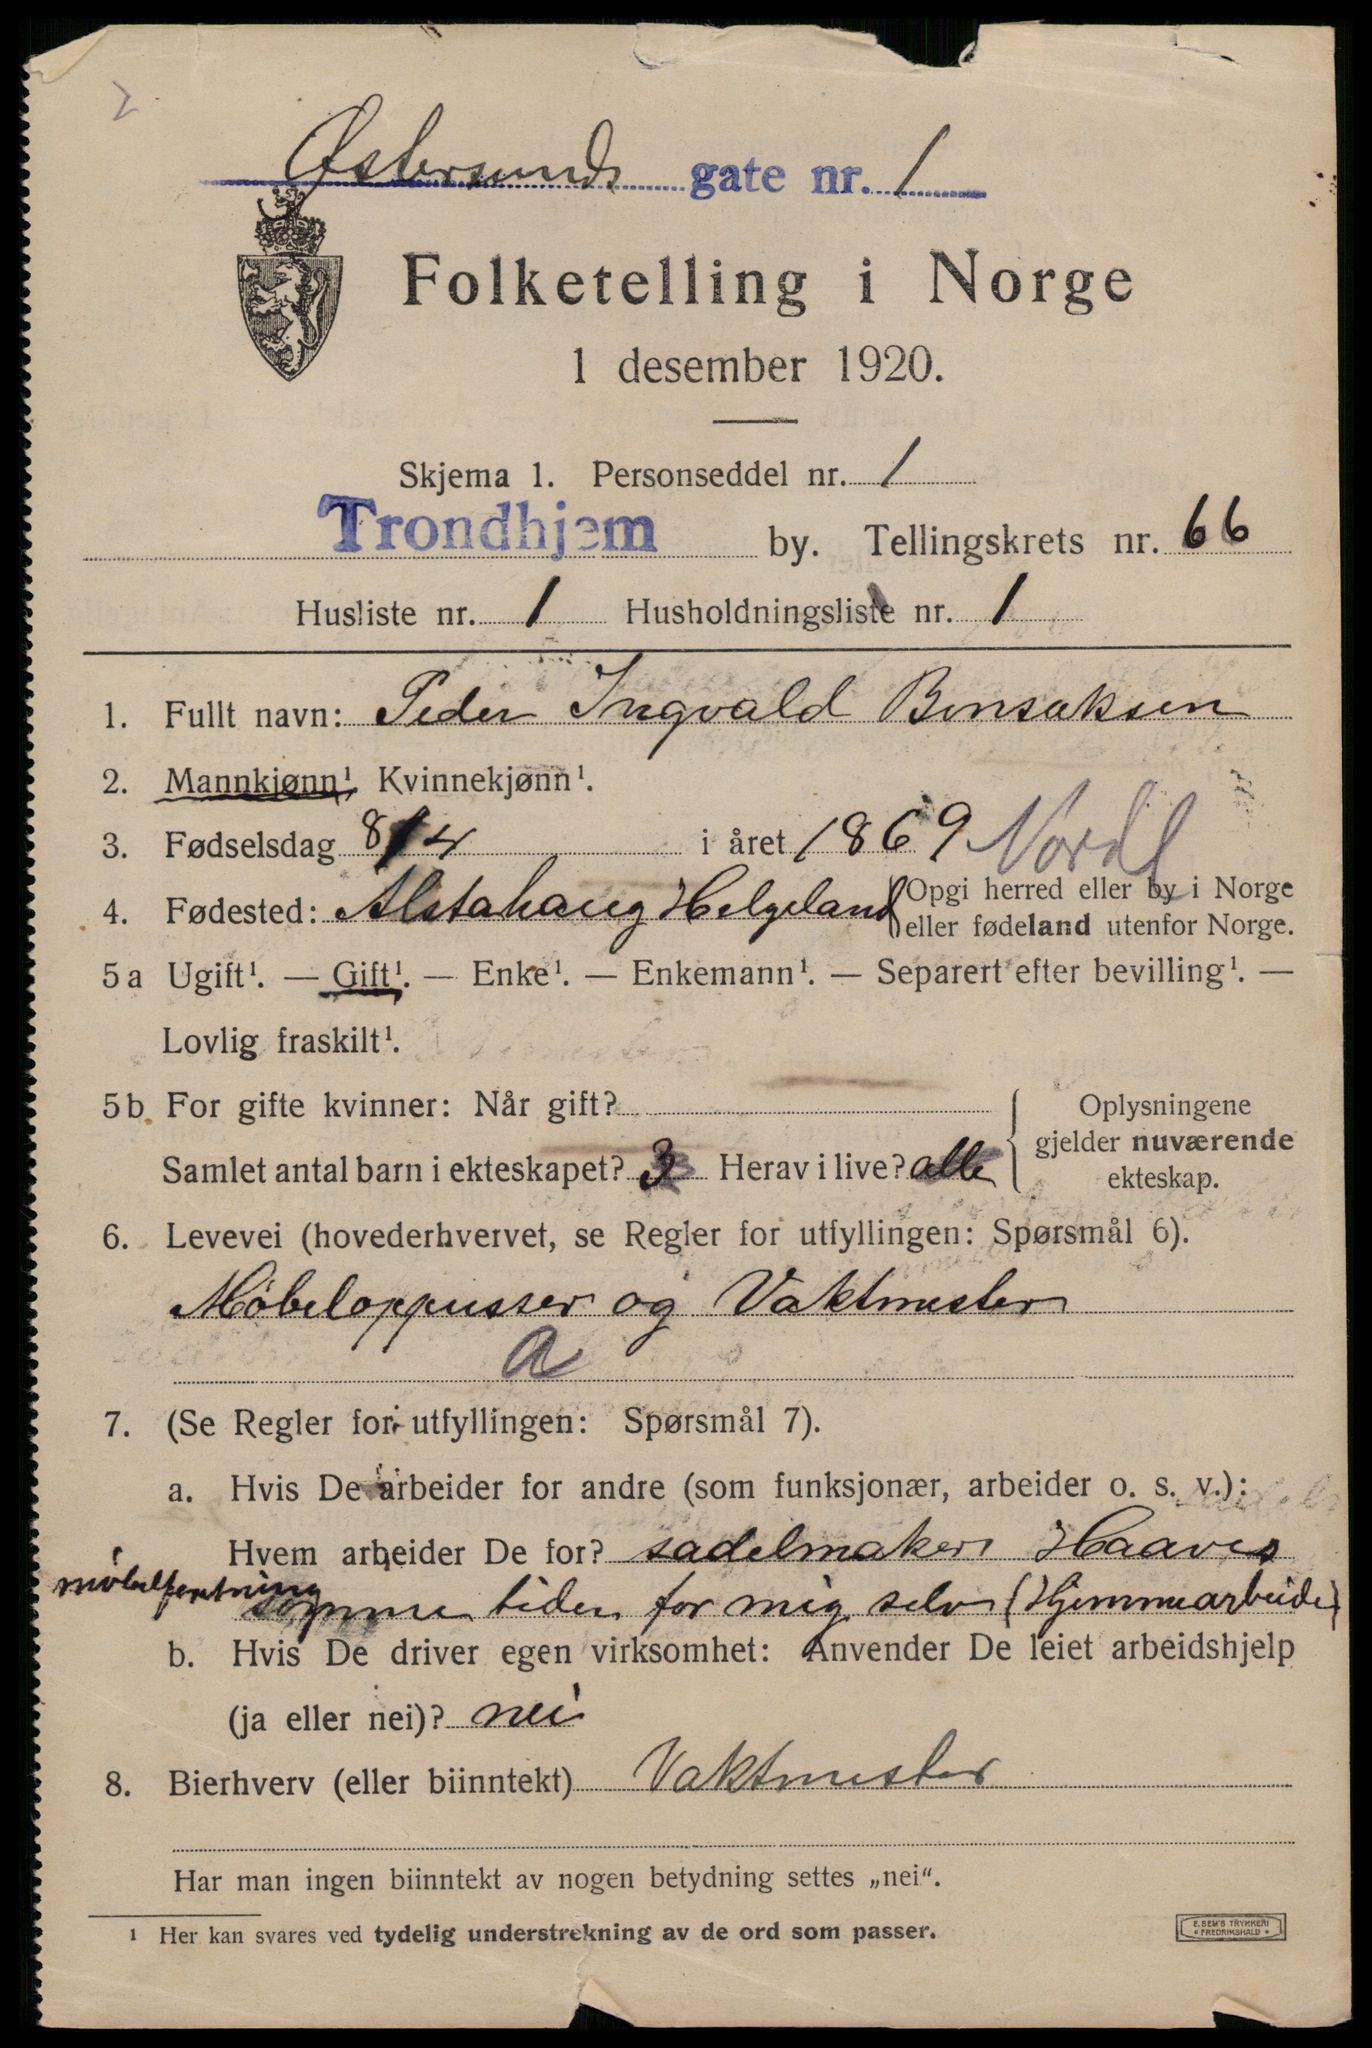 2
Østersunds gate nr. 1
Folketelling i Norge
1 desember 1920.
Skjema 1. Personseddel nr. 1
Trondhjem by. Tellingskrets nr. 66
Husliste nr. 1 Husholdningsliste nr. 1
1. Fullt navn: Peder Ingvald Bensaksen
2. Mannkjønn¹. Kvinnekjønn¹.
3. Fødselsdag 8/4 i året 1869 Nordl
4. Fødested: Alstahaug Helgeland {Opgi herred eller by i Norge
eller fødeland utenfor Norge.
5a Ugift¹. — Gift¹. — Enke¹. — Enkemann¹. — Separert efter bevilling¹. —
Lovlig fraskilt¹.
5b For gifte kvinner: Når gift?
Samlet antal barn i ekteskapet? 3 Herav i live? alle
Oplysningene
gjelder nuværende
ekteskap.
6. Levevei (hovederhvervet, se Regler for utfyllingen: Spørsmål 6).
Møbeloppusser og Vaktmester
a
7. (Se Regler for utfyllingen: Spørsmål 7).
a. Hvis De arbeider for andre (som funksjonær, arbeider o. s. v.):
Hvem arbeider De for? sadelmaker Haaves
møbelforetning
somme tider for mig selv (Hjemmearbeide)
b. Hvis De driver egen virksomhet: Anvender De leiet arbeidshjelp
(ja eller nei)? nei
8. Bierhverv (eller biinntekt) Vaktmester
Har man ingen biinntekt av nogen betydning settes „nei“.
¹ Her kan svares ved tydelig understrekning av de ord som passer.
E. SEM'S TRYKKERI
FREDRIKSHALD